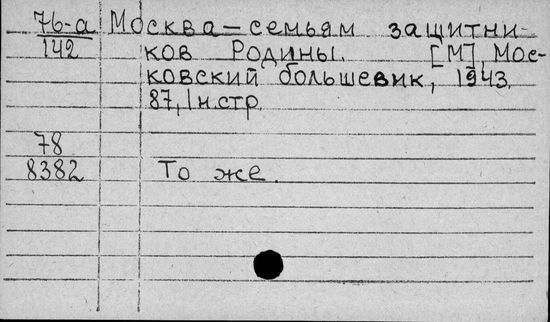 76-а Москва — семьям защитни-
142 ков Родины. [М], Мос-
ковский большевик, 1943.
87, 1 н. стр.
78
8382 То же.